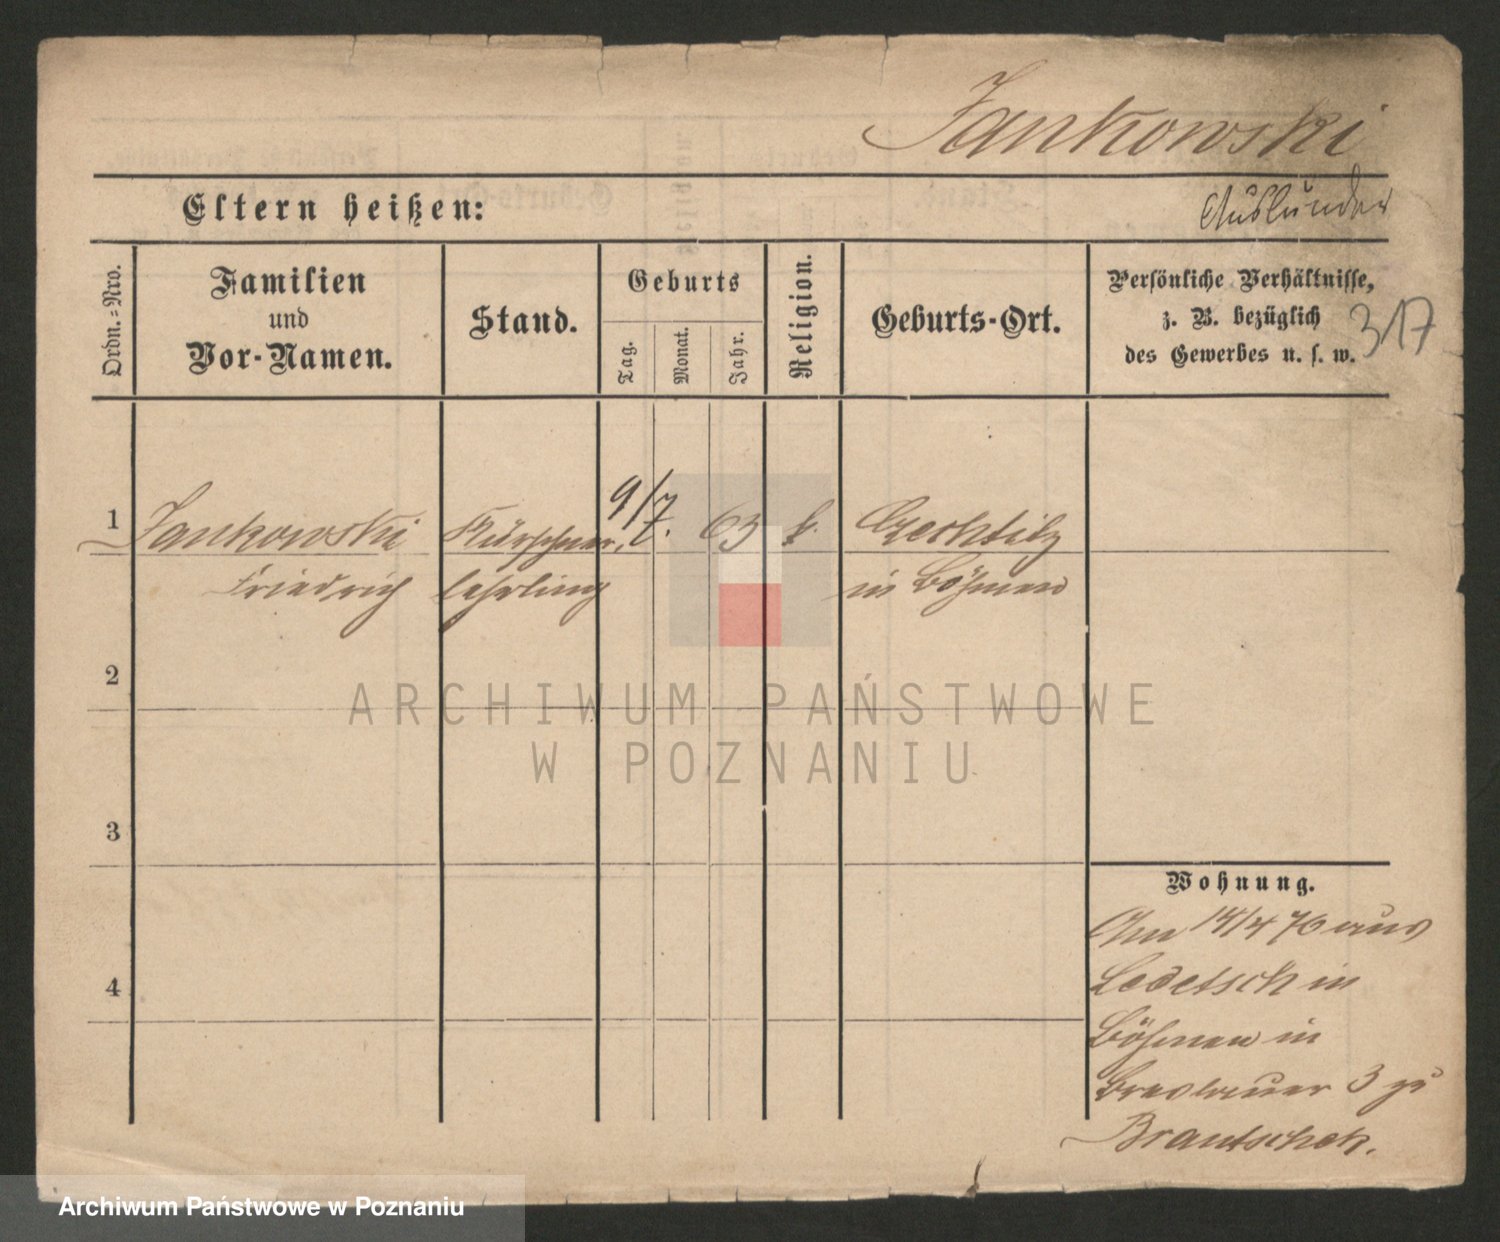 Jankowski
Eltern heißen:
Ausländer
Ordn.-Nro.
Familien
und
Vor-Namen.
Stand.
Geburts
Tag.
Monat.
Jahr.
Religion.
Geburts-Ort.
Persönliche Verhältnisse,
z. B. bezüglich
des Gewerbes u. s. w.
317
1
Jankowski
Friedrich
Kürschner
lehrling
9/7. 63
k.
in Böhmen
2
3
4
Wohnung.
Am 14/4 76 aus
Ledetsch in
Böhmen in
Breslauer 3 zu
Brantschek.
ARCHIWUM PAŃSTWOWE
W POZNANIU
Archiwum Państwowe w Poznaniu